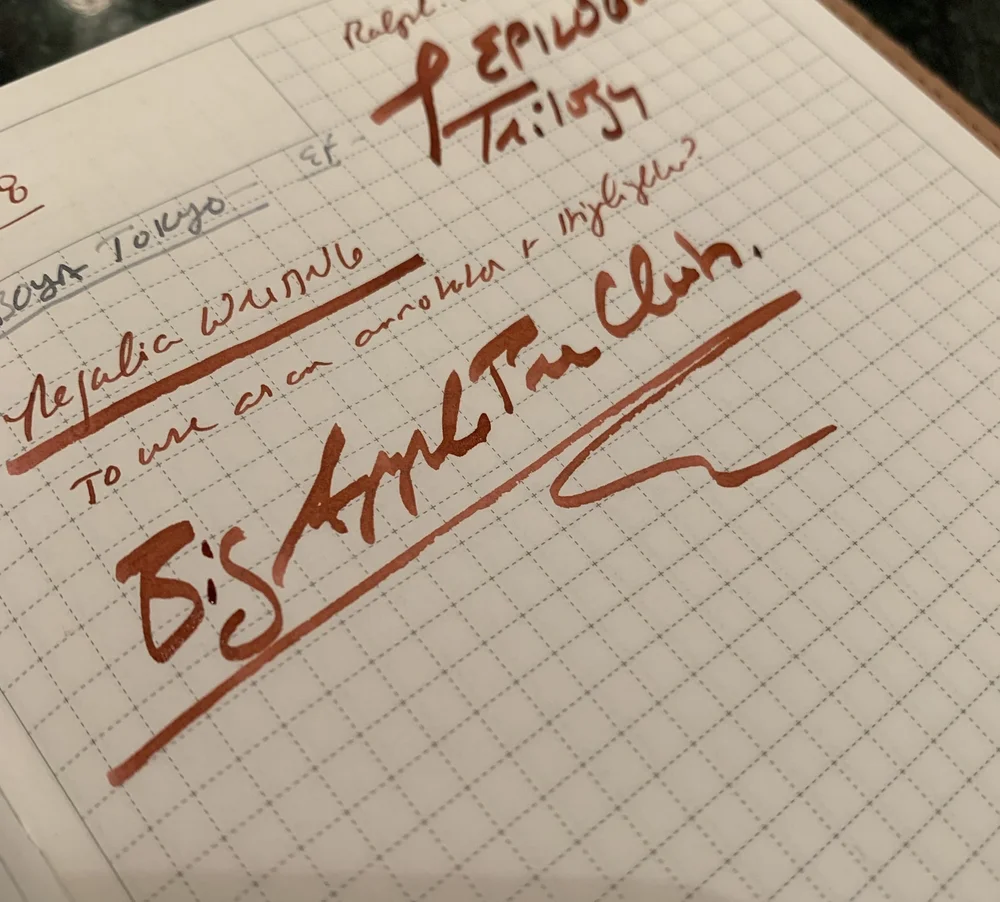 Ralph.
EPILOG
Trilogy
8
EF
TOKYO
Regalia WRITING
To use as an annotator + Highlighter?
Big Apple Tree Club.